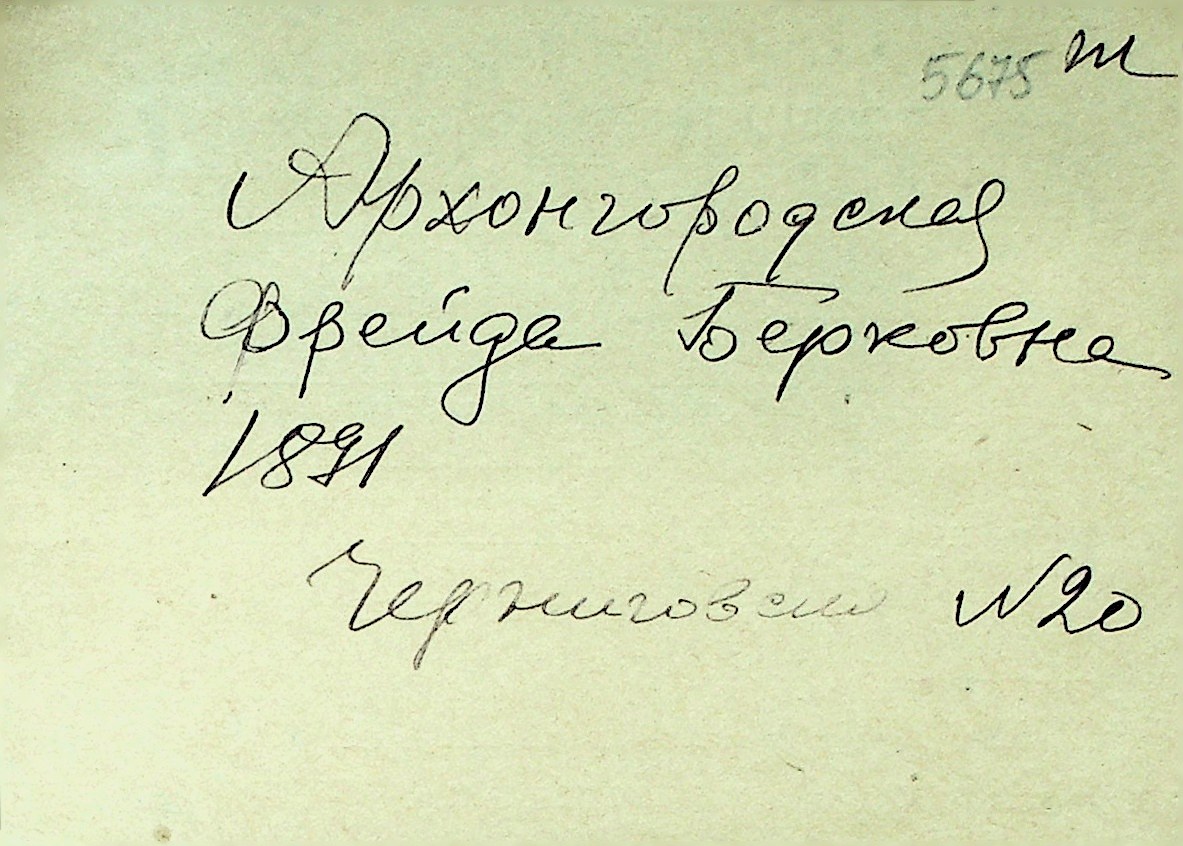 5675 т
Архонгородская
Фрейда Берковна
1891
Черниговски N20